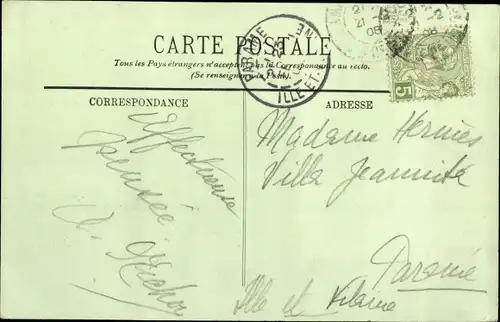 CARTE POSTALE
Tous les Pays étrangers n'acceptent pas la Correspondance au recto.
(Se renseigner à la Poste).
PARAMÉ
ILLE-ET-
CORRESPONDANCE
ADRESSE
5
Affectueuse
pensée
Madame Hermès
Villa Jeannite
Paramé
Ille et Vilaine